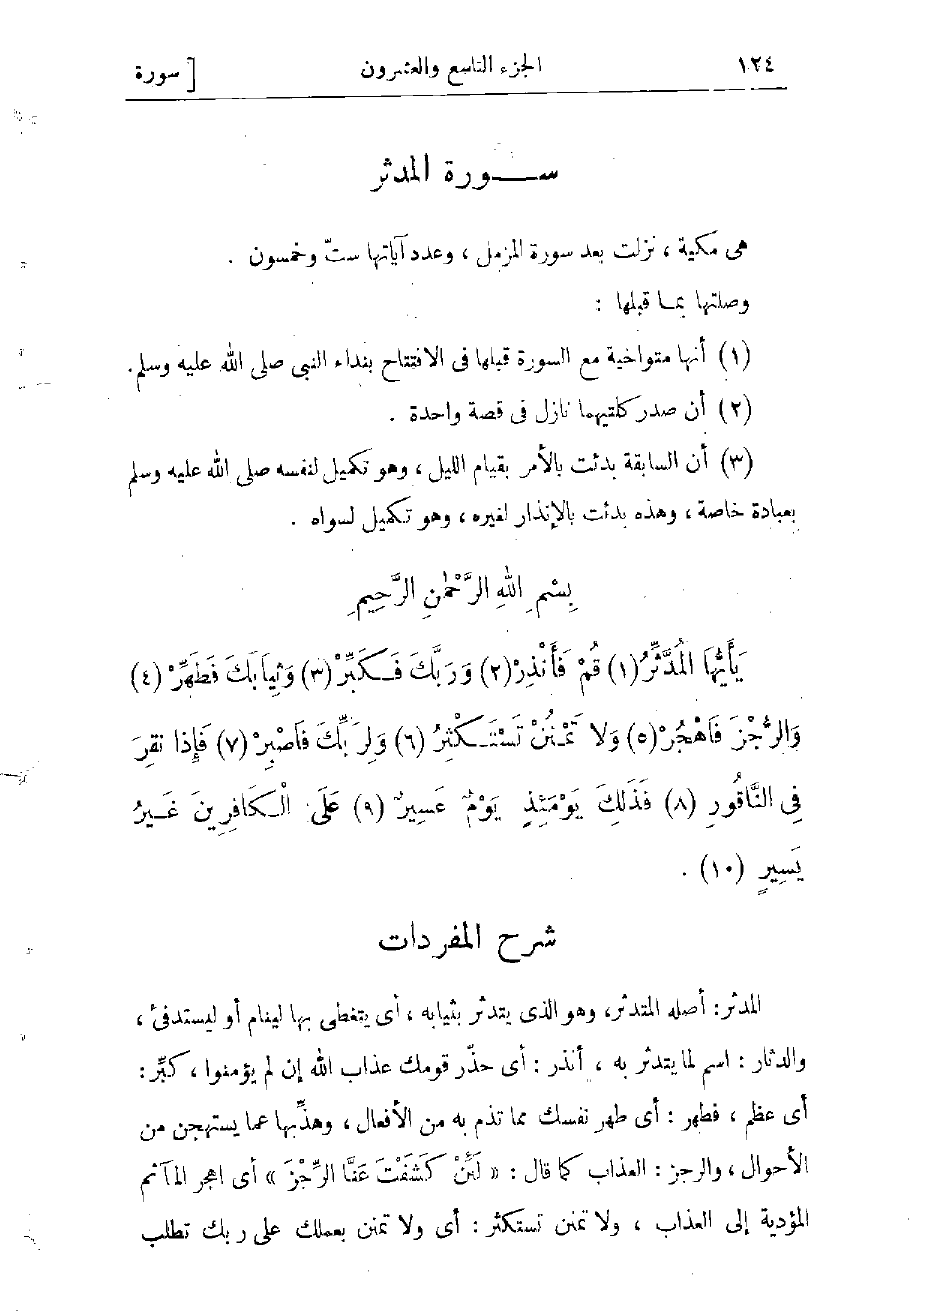 ١٢٤ الجزء التاسع والعشرون [ سورة
ســورة المدثر
هى مكية ، نزلت بعد سورة المزمل ، وعدد آياتها ستّ وخمسون .
وصلتها بما قبلها :
(١) أنها متواخية مع السورة قبلها فى الافتتاح بنداء النبى صلى الله عليه وسلم.
(٢) أن صدر كلتيهما نازل فى قصة واحدة .
(٣) أن السابقة بدئت بالأمر بقيام الليل ، وهو تكميل لنفسه صلى الله عليه وسلم
بعبادة خاصة ، وهذه بدئت بالإنذار لغيره ، وهو تكميل لسواه .
بِسْمِ اللهِ الرَّحْمٰنِ الرَّحِيمِ
يَأَيُّهَا الْمُدَّثِّرُ (١) قُمْ فَأَنْذِرْ (٢) وَرَبَّكَ فَكَبِّرْ (٣) وَثِيَابَكَ فَطَهِّرْ (٤)
وَالرُّجْزَ فَاهْجُرْ (٥) وَلَا تَمْنُنْ تَسْتَكْثِرُ (٦) وَلِرَبِّكَ فَاصْبِرْ (٧) فَإِذَا نُقِرَ
فِى النَّاقُورِ (٨) فَذَلِكَ يَوْمَئِذٍ يَوْمٌ عَسِيرٌ (٩) عَلَى الْكَافِرِينَ غَيْرُ
يَسِيرٍ (١٠) .
شرح المفردات
المدثر : أصله المتدثر، وهو الذى يتدثر بثيابه ، أى يتغطى بها لينام أو ليستدفئ ،
والدثار : اسم لما يتدثر به ، أنذر : أى حذّر قومك عذاب الله إن لم يؤمنوا ، كبِّر :
أى عظم ، فطهر : أى طهر نفسك مما تذم به من الأفعال ، وهذِّبها عما يستهجن من
الأحوال ، والرجز : العذاب كما قال : « لَئِنْ كَشَفْتَ عَنَّا الرِّجْزَ » أى اهجر المآثم
المؤدية إلى العذاب ، ولا تمنن تستكثر : أى ولا تمنن بعملك على ربك تطلب